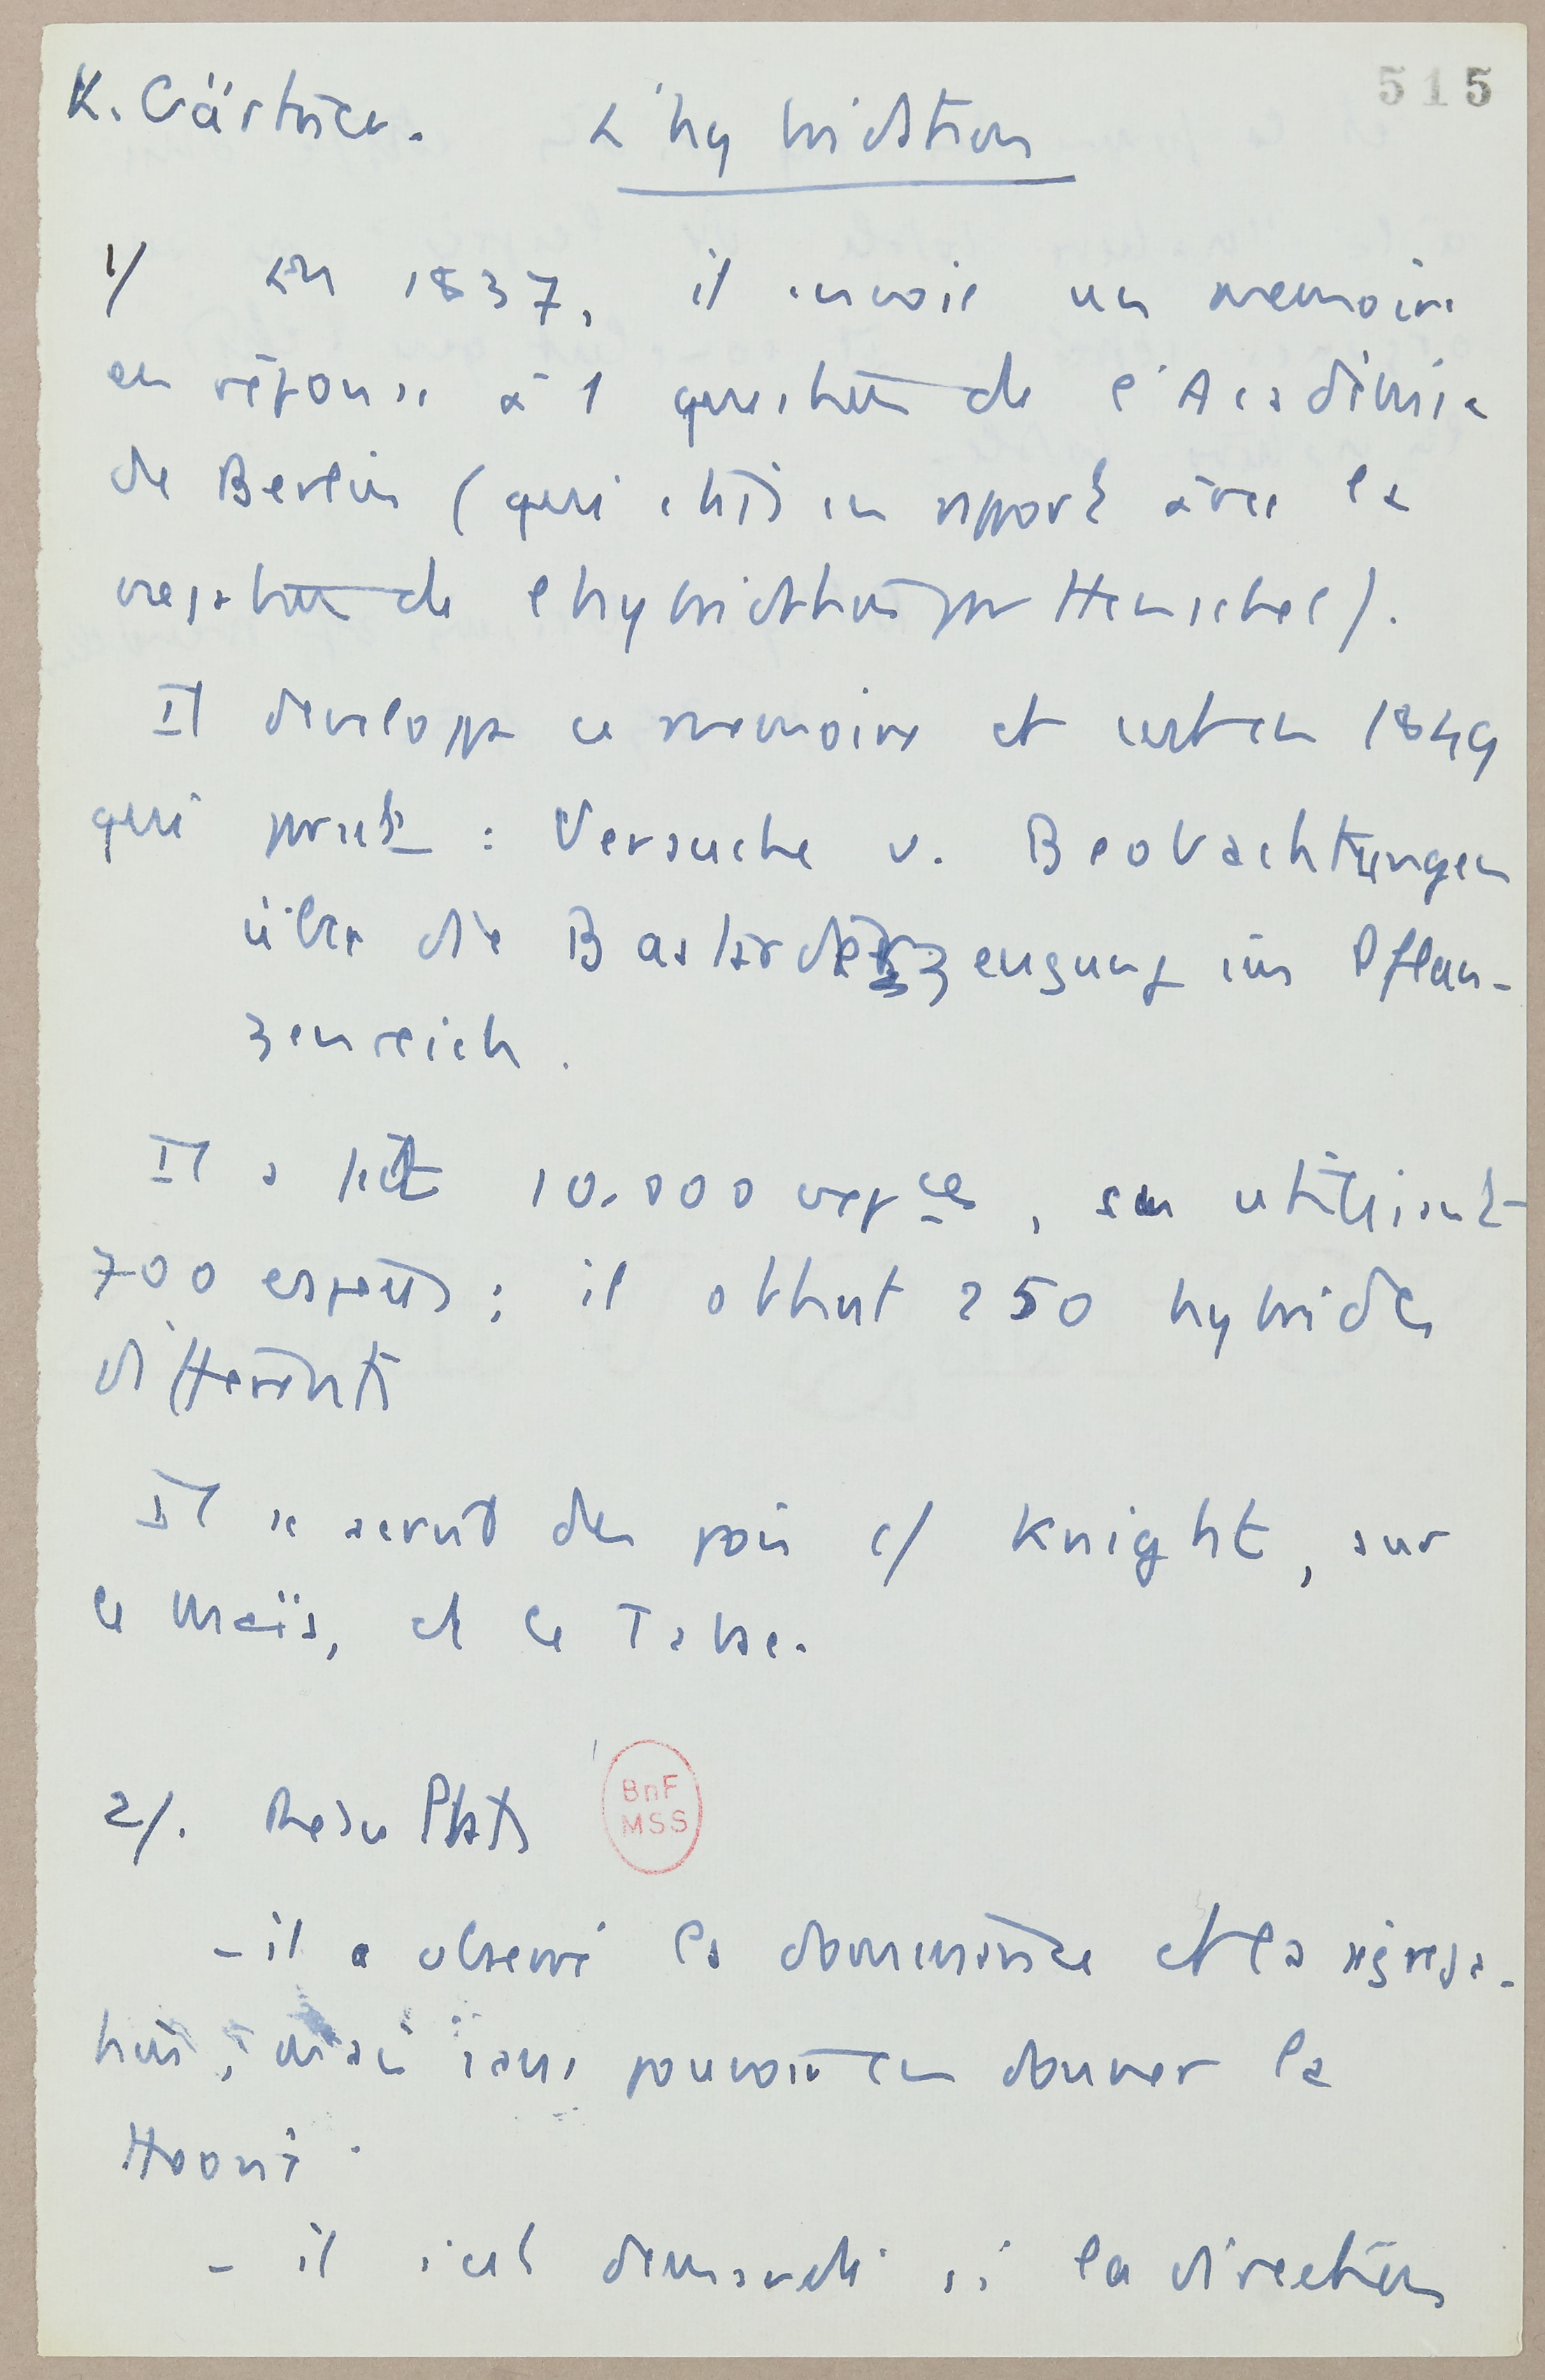 515
K. Gärtner. L'hybridation
1/ En 1837, il envoie un memoire
en réponse à 1 question de l'Académie
de Berlin (question en rapport avec la
negation de l'hybridation par Henschel).
Il developpa ce memoire et en 1849
qui : Versuche u. Beobachtungen
über die Bastarderzeugung im Pflan-
zenreich.
Il a fait 10.000 expces, en utilisant
700 especes ; il obtient 250 hybrides
differents
Il se servit des pois c/ Knight, sur
le Maïs, et le Tabac.
2/. Resultats
BnF
MSS
- il a observé la dominance et la régres-
sion, mais sans pouvoir en donner la
théorie.
- il s'est demandé si la direction